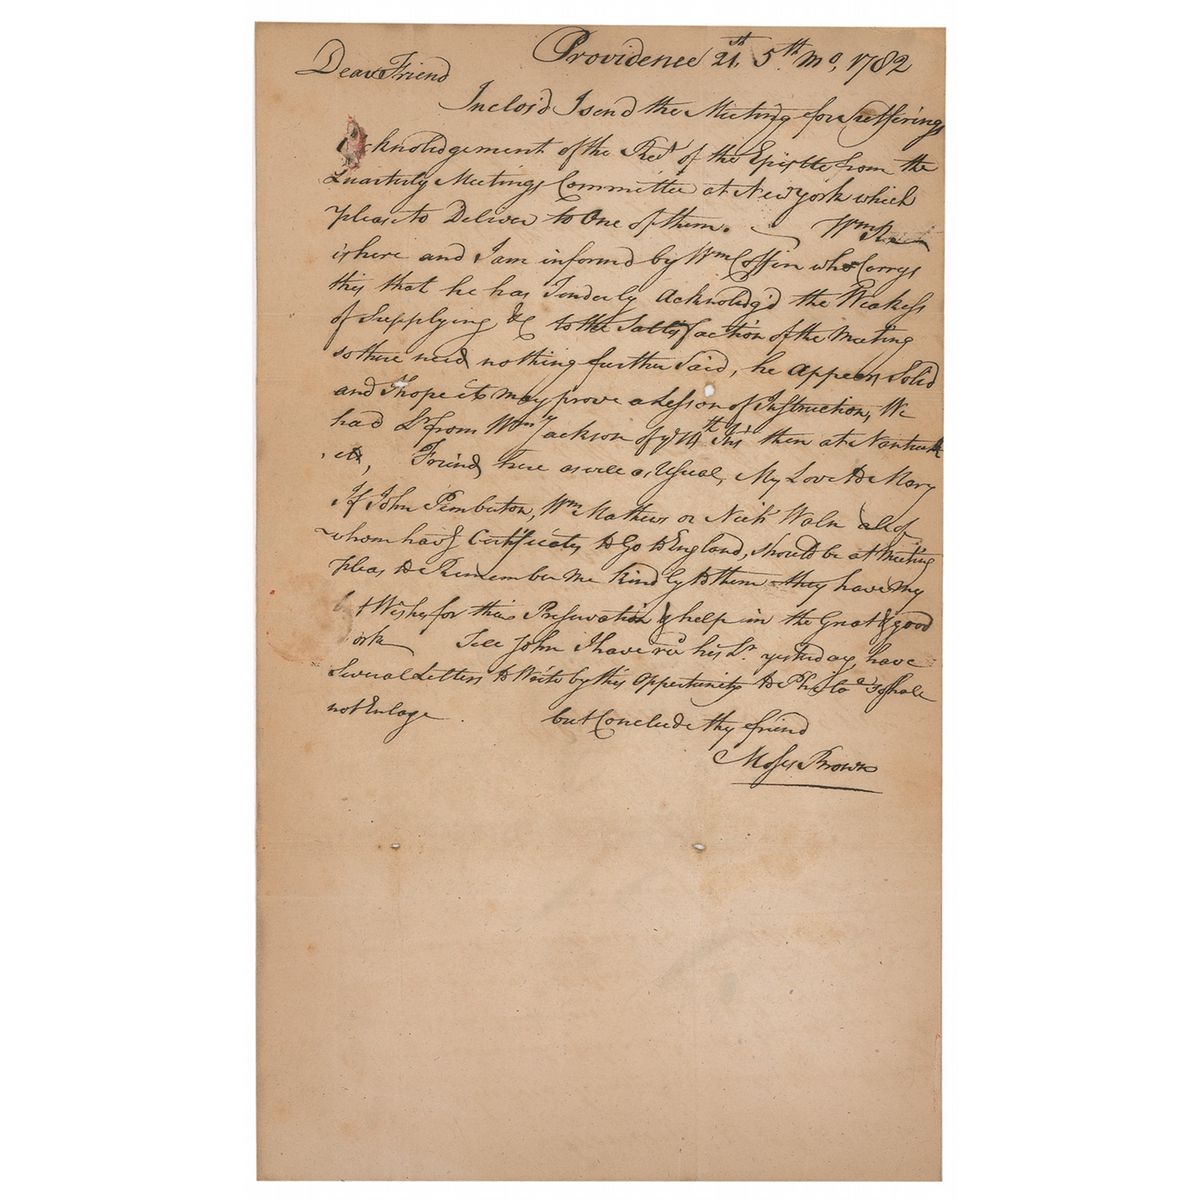 Providence 21th 5th mo, 1782
Dear Friend
Inclos'd I send the Meeting for Sufferings
Acknolidgement of the Recd of the Epistle from the
Quarterly Meetings Committee at New york which
please to Deliver to One of them. Wm
is here and I am informd by Wm Coffin who Carrys
this that he has Tenderly Acknolidg'd the Weakess
of Supplying &c to the Sattisfaction of the Meeting
so there need nothing further Said, he Appears Solid
and I hope it may prove a Lesson of Instruction, We
had Lr from Wm Jackson of ye 14th Ins then at Nantuck
et, Friends here as well as Usual, My Love to Mary
If John Pemberton, Wm Mathews or Nichs Waln all of
whom have Certificates to Go to England, should be at Meeting
pleas to Remember me kindly to them they have my
bt Wishes for their Preservation & help in the Great & good
work Tell John I have recd his Lr yesterday, have
Several Letters to Write by this Opportunity to Phila so shall
not Enlage but Conclude thy friend
Moses Brown